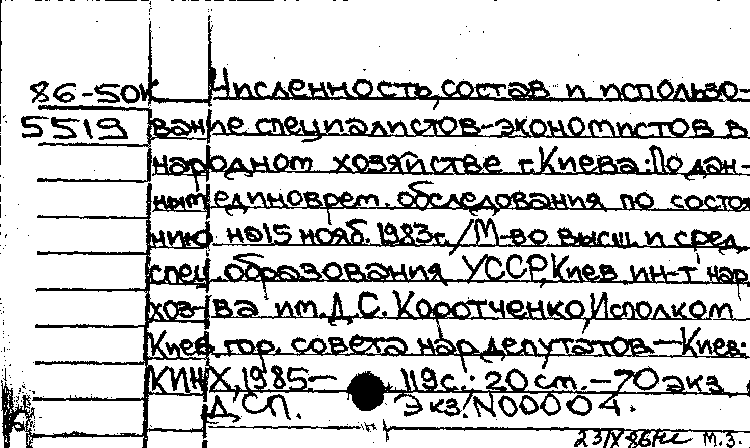 86-50К Численность, состав и использо-
5519 вание специалистов-экономистов в
народном хозяйстве г. Киева: По дан-
ным единоврем. обследования по состоя-
нию на 15 нояб. 1983г. / М-во высш. и сред.
спец. образования УССР, Киев. ин-т нар.
хоз-ва им. Д. С. Коротченко, Исполком
Киев. гор. совета нар. депутатов. — Киев:
КИНХ, 1985 — 119с.: 20 см. — 70 экз.
ДСП. Экз. N00004.
23/IX 86 М.З.